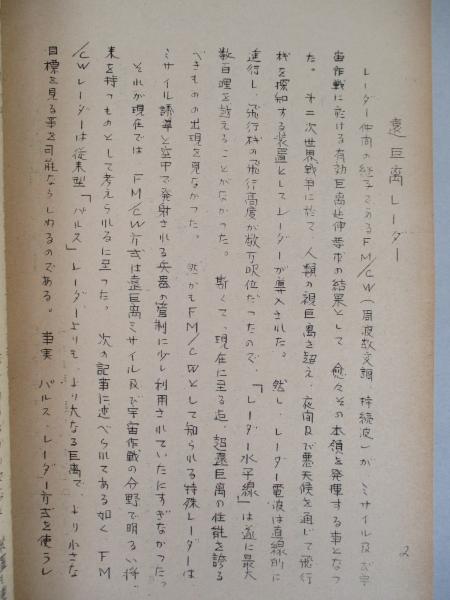 遠距離レーダー
レーダー仲間の継子であるFM/CW(周波数変調、持続波)が、ミサイル及び宇
宙作戦に於ける有効距離延伸等の結果として 愈々その本領を発揮する事となつ
た。 オ二次世界戦争に於て、人類の視距離を超え、夜間及び悪天候を通じて飛行
機を探知する装置としてレーダーが導入された。 然し、レーダー電波は直線的に
進行し、飛行機の飛行高度が数万呎位だつたので、「レーダー水平線」は遂に最大
数百哩を越えることがなかつた。 斯くて、現在に至る迄、超遠距離の性能を誇る
べきものの出現を見なかつた。 然かもFM/CWとして知られる特殊レーダーは、
ミサイル誘導と空中で発射される兵器の管制に少し利用されていたにすぎなかつた。
それが現在では FM/CW方式は遠距離ミサイル及び宇宙作戦の分野で明るい将
来を持つものとして考えられるに至つた。 次の記事に述べられてある如く FM
/CWレーダーは従来型「パルス」レーダーよりも、より大なる距離で、より小さな
目標を見る事を可能ならしめるのである。 事実 パルス・レーダー方式を使うレ
2